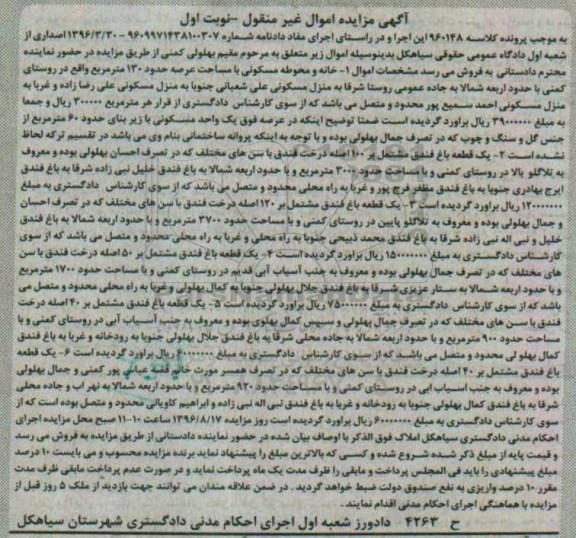 آگهی مزایده اموال غیر منقول -نوبت اول
به موجب پرونده کلاسه ۹۶۰۱۴۸ این اجرا و در راستای اجرای مفاد دادنامه شماره ۹۶۰۹۹۷۱۴۳۸۱۰۰۳۰۷ - ۱۳۹۶/۳/۳۰ اصداری از
شعبه اول دادگاه عمومی حقوقی سیاهکل بدینوسیله اموال زیر متعلق به مرحوم مقیم بهلولی کمنی از طریق مزایده در حضور نماینده
محترم دادستانی به فروش می رسد مشخصات اموال ۱- خانه و محوطه مسکونی با مساحت عرصه حدود ۱۳۰ مترمربع واقع در روستای
کمنی با حدود اربعه شمالا به جاده عمومی روستا شرقا به منزل مسکونی علی شعبانی جنوبا به منزل مسکونی علی رضا زاده و غربا به
منزل مسکونی احمد سمیع پور محدود و متصل می باشد که از سوی کارشناس دادگستری از قرار هر مترمربع ۳۰۰۰۰۰ ریال و جمعا
به مبلغ ۳۹۰۰۰۰۰۰ ریال برآورد گردیده است ضمنا توضیح اینکه در عرصه فوق یک واحد مسکونی با زیر بنای حدود ۶۰ مترمربع از
جنس گل و سنگ و چوب که در تصرف جمال بهلولی بوده و با توجه به اینکه پروانه ساختمانی بنام وی می باشد در تقسیم ترکه لحاظ
نشده است ۲- یک قطعه باغ فندق مشتمل بر ۱۰۰ اصله درخت فندق با سن های مختلف که در تصرف احسان بهلولی بوده و معروف
به تلاگلو بالا در روستای کمنی و با مساحت حدود ۳۰۰۰ مترمربع و با حدود اربعه شمالا به باغ فندق خلیل نبی زاده شرقا به باغ فندق
ایرج بهادری جنوبا به باغ فندق مظفر فرج پور و غربا به راه محلی محدود و متصل می باشد که از سوی کارشناس دادگستری به مبلغ
۱۲۰۰۰۰۰۰۰ ریال براورد گردیده است ۳- یک قطعه باغ فندق مشتمل بر ۱۲۰ اصله درخت فندق با سن های مختلف که در تصرف احسان
و جمال بهلولی بوده و معروف به تلاگلو پایین در روستای کمنی و با مساحت حدود ۳۷۰۰ مترمربع و با حدود اربعه شمالا به باغ فندق
خلیل و نبی اله نبی زاده شرقا به باغ فندق محمد ذبیحی جنوبا به راه محلی و غربا به راه محلی محدود و متصل می باشد که از سوی
کارشناس دادگستری به مبلغ ۱۵۰۰۰۰۰۰۰ ریال براورد گردیده است ۴- یک قطعه باغ فندق مشتمل بر ۵۰ اصله درخت فندق با سن
های مختلف که در تصرف جمال بهلولی بوده و معروف به جنب آسیاب آبی قدیم در روستای کمنی و با مساحت حدود ۱۷۰۰ مترمربع
و با حدود اربعه شمالا به ستار عزیزی شرقا به باغ فندق جلال بهلولی جنوبا به کمال بهلولی و غربا به راه محلی محدود و متصل می
باشد که از سوی کارشناس دادگستری به مبلغ ۷۵۰۰۰۰۰۰ ریال براورد گردیده است ۵- یک قطعه باغ فندق مشتمل بر ۴۰ اصله درخت
فندق با سن های مختلف که در تصرف جمال بهلولی و سپس کمال بهلوی بوده و معروف به جنب آسیاب آبی در روستای کمنی و با
مساحت حدود ۹۰۰ مترمربع و با حدود اربعه شمالا به جاده محلی شرقا به باغ فندق جلال بهلولی جنوبا به رودخانه و غربا به باغ فندق
کمال بهلو لی محدود و متصل می باشد که از سوی کارشناس دادگستری به مبلغ ۶۰۰۰۰۰۰۰ ریال براورد گردیده است ۶- یک قطعه
باغ فندق مشتمل بر ۴۰ اصله درخت فندق با سن های مختلف که در تصرف همسر مورث خانم فضه عباس پور کمنی و جمال بهلولی
بوده و معروف به جنب اسیاب ابی در روستای کمنی و با مساحت حدود ۹۲۰ مترمربع و با حدود اربعه شمالا به نهر اب و جاده محلی
شرقا به باغ فندق کمال بهلولی جنوبا به رودخانه و غربا به باغ فندق نبی اله نبی زاده و ابراهیم کاویانی محدود و متصل بوده است که از
سوی کارشناس دادگستری به مبلغ ۶۰۰۰۰۰۰۰ ریال براورد گردیده است روز مزایده ۱۳۹۶/۸/۱۷ ساعت ۱۰-۱۱ صبح محل مزایده اجرای
احکام مدنی دادگستری سیاهکل املاک فوق الذکر با اوصاف بیان شده در حضور نماینده دادستانی از طریق مزایده به فروش می رسد
و قیمت پایه از مبلغ ذکر شده شروع شده و کسی که بالاترین مبلغ را پیشنهاد نماید برنده مزایده محسوب و می بایست ۱۰ درصد
مبلغ پیشنهادی را باید فی المجلس پرداخت و مابقی را ظرف مدت یک ماه پرداخت نماید و در صورت عدم پرداخت مابقی ظرف مدت
مقرر ۱۰ درصد واریزی به نفع صندوق دولت ضبط خواهد گردید . در ضمن علاقه مندان می توانند جهت بازدید از ملک ۵ روز قبل از
مزایده با هماهنگی اجرای احکام مدنی اقدام نمایند .
ح ۴۲۶۳ دادورز شعبه اول اجرای احکام مدنی دادگستری شهرستان سیاهکل